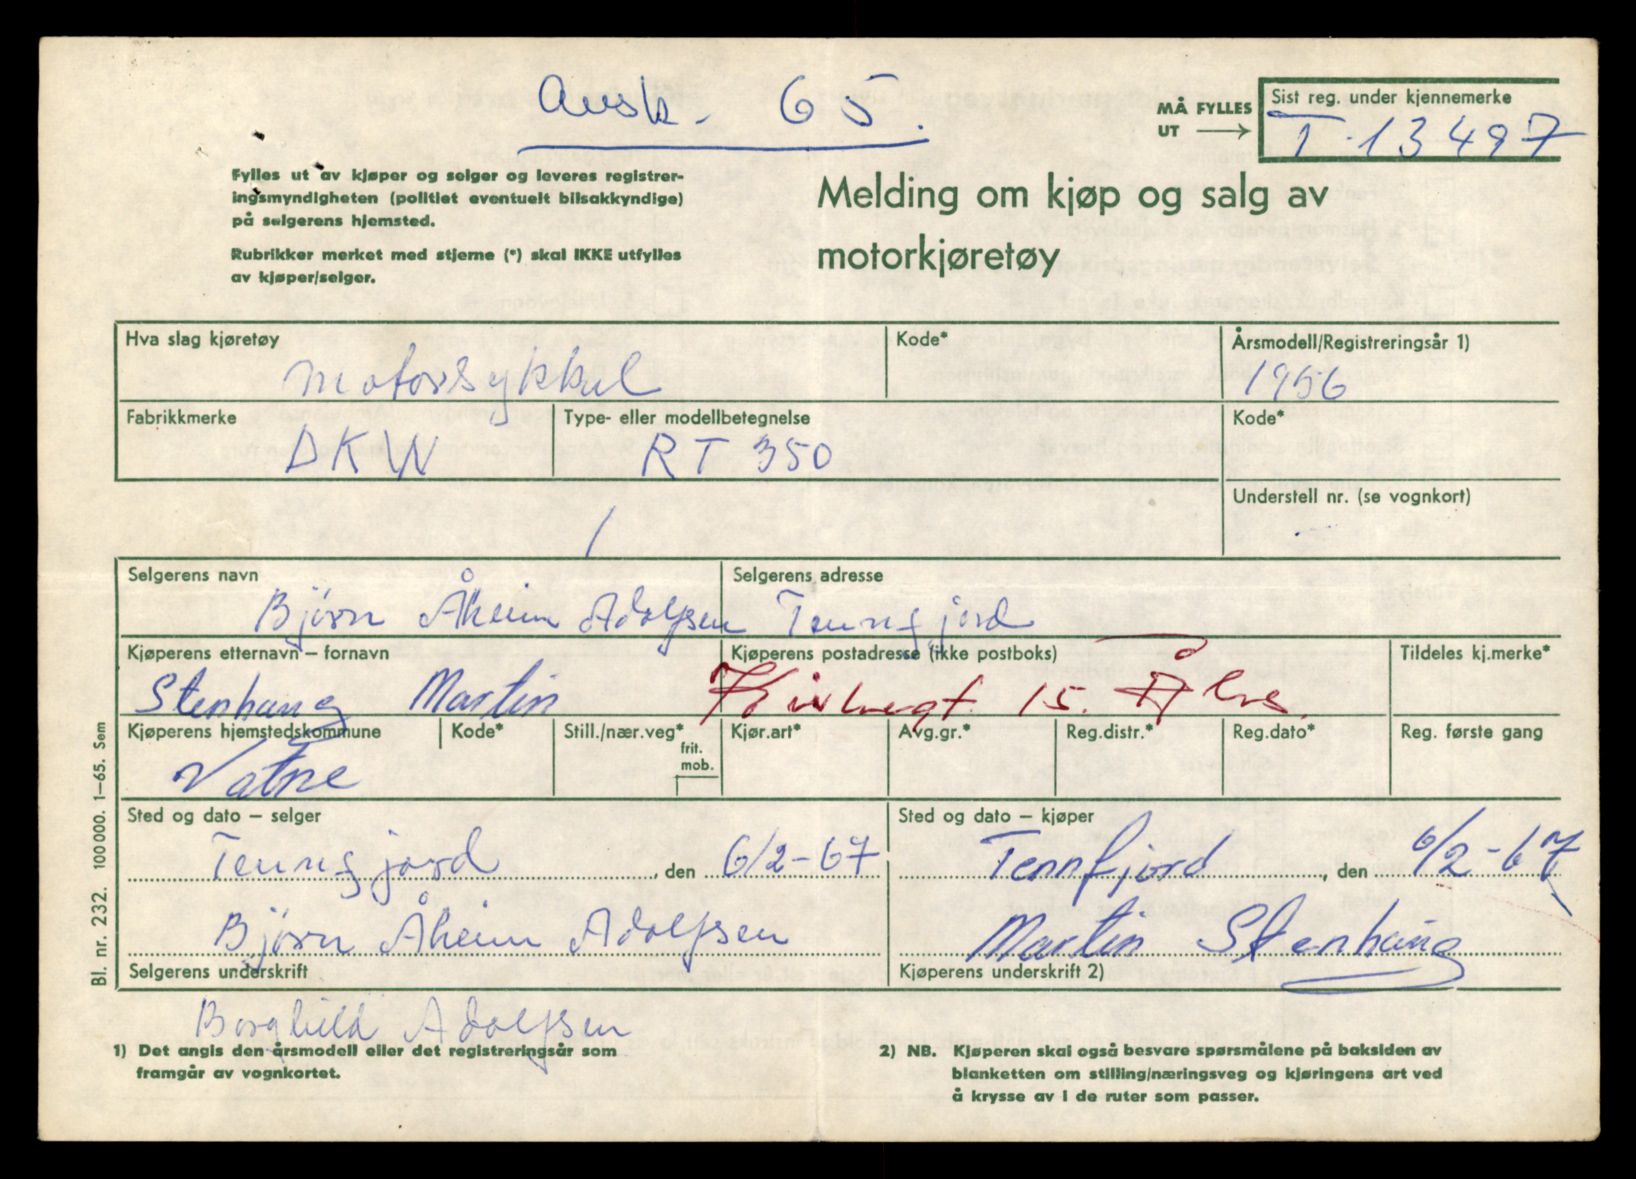 Avsk. 65.
MÅ FYLLES UT →
Sist reg. under kjennemerke
T-13497
Fylles ut av kjøper og selger og leveres registrer-
ingsmyndigheten (politiet eventuelt bilsakkyndige)
på selgerens hjemsted.
Rubrikker merket med stjerne (*) skal IKKE utfylles
av kjøper/selger.
Melding om kjøp og salg av
motorkjøretøy
Hva slag kjøretøy
Motorsykkel
Kode*
Årsmodell/Registreringsår 1)
1956
Fabrikkmerke
DKW
Type- eller modellbetegnelse
RT 350
Kode*
Understell nr. (se vognkort)
Selgerens navn
Bjørn Åheim Adolfsen
Selgerens adresse
Tennfjord
Kjøperens etternavn – fornavn
Stenhaug Martin
Kjøperens postadresse (ikke postboks)
15. Ål
Tildeles kj.merke*
Kjøperens hjemstedskommune
Vatne
Kode*
Still./nær.veg*
frit.
mob.
Kjør.art*
Avg.gr.*
Reg.distr.*
Reg.dato*
Reg. første gang
Sted og dato – selger
Tennfjord, den 6/2-67
Bjørn Åheim Adolfsen
Selgerens underskrift
Sted og dato – kjøper
Tennfjord, den 6/2-67
Martin Stenhaug
Kjøperens underskrift 2)
Borghild Adolfsen
1) Det angis den årsmodell eller det registreringsår som
framgår av vognkortet.
2) NB. Kjøperen skal også besvare spørsmålene på baksiden av
blanketten om stilling/næringsveg og kjøringens art ved
å krysse av i de ruter som passer.
Bl. nr. 232. 100 000. 1–65. Sem